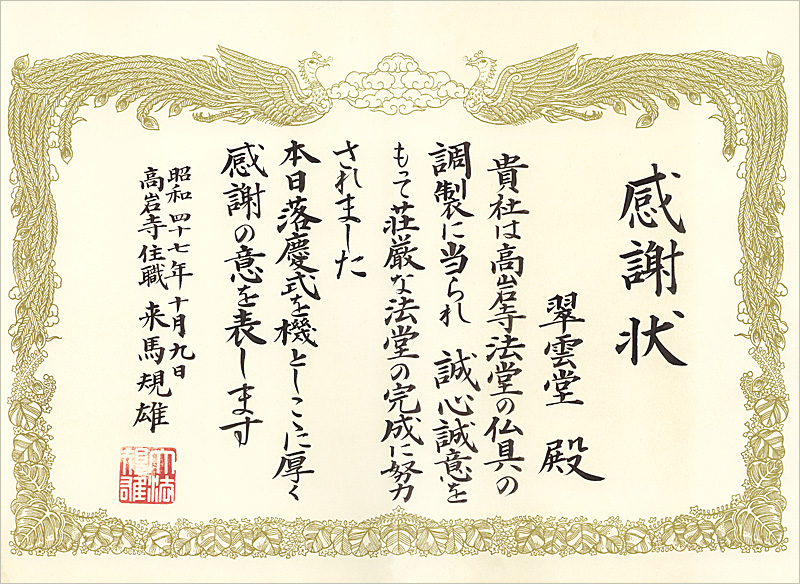 感謝状
翠雲堂 殿
貴社は高岩寺法堂の仏具の
調製に当られ 誠心誠意を
もって荘厳な法堂の完成に努力
されました
本日落慶式を機としここに厚く
感謝の意を表します
昭和四十七年十月九日
高岩寺住職 来馬規雄